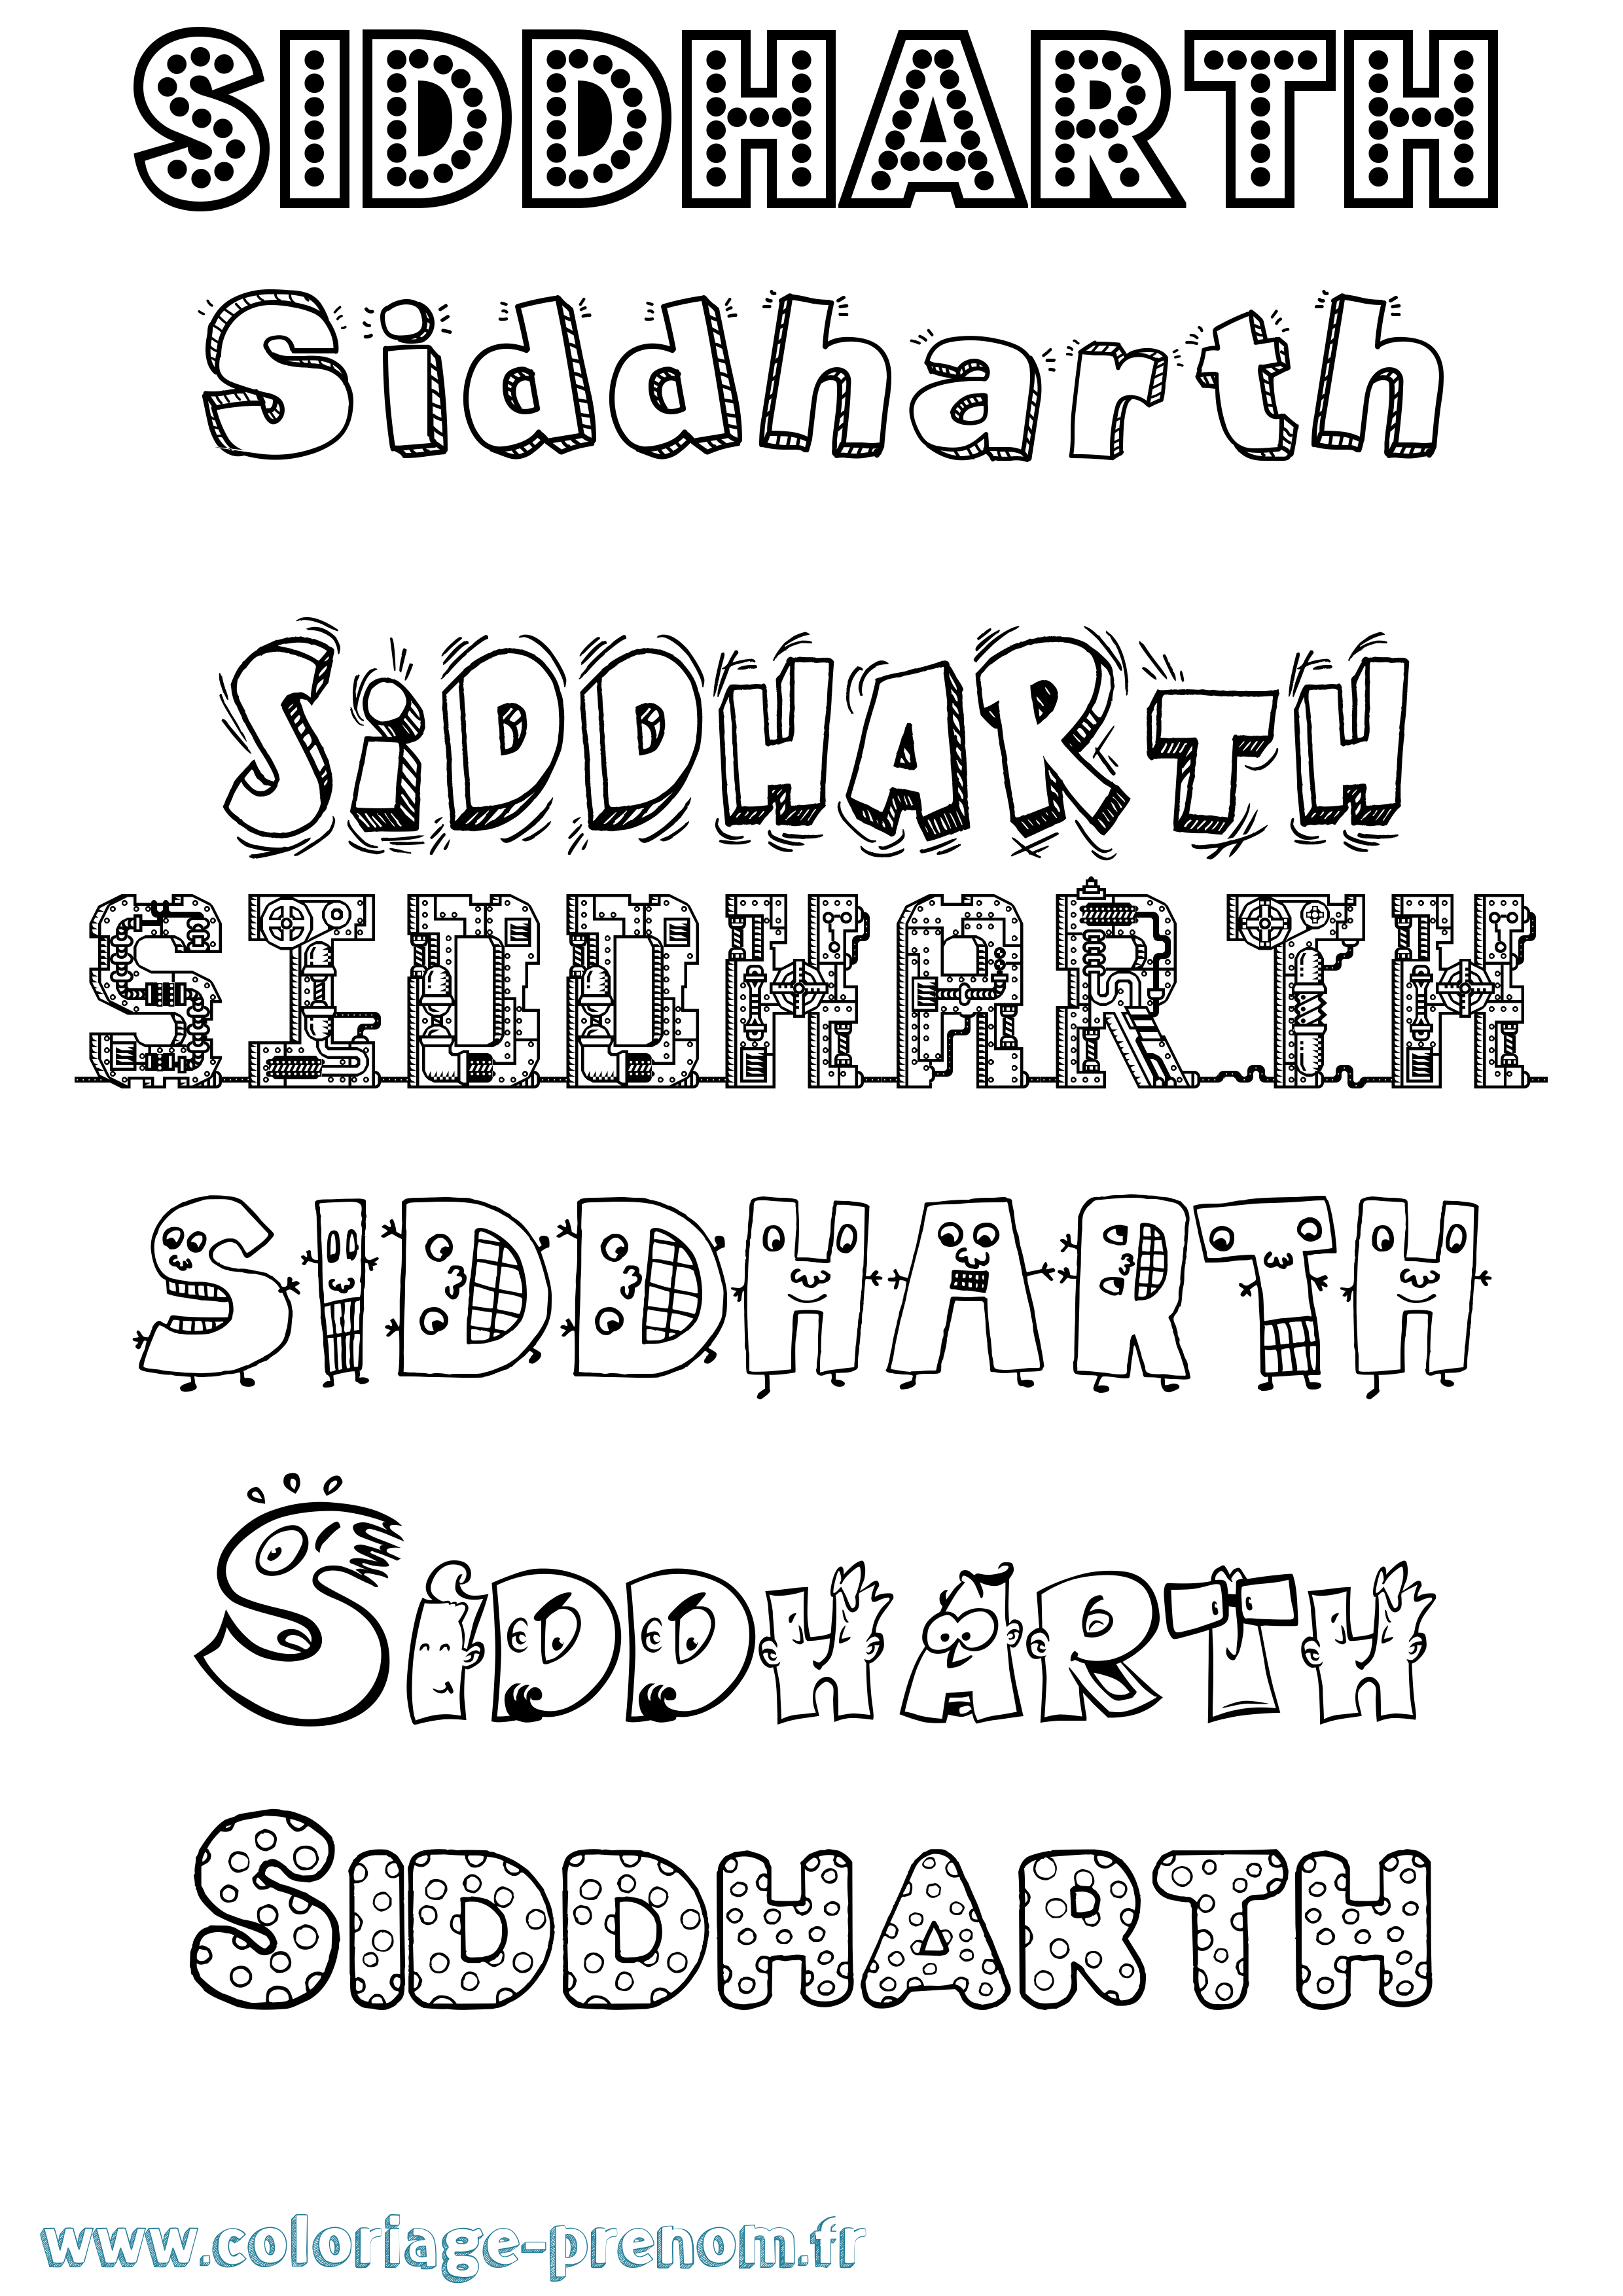 SIDDHARTH
Siddharth
SiDDHARTH
SIDDHARTH
SIDDHARTH
SIDDHARTH
SIDDHARTH
www.coloriage-prenom.fr